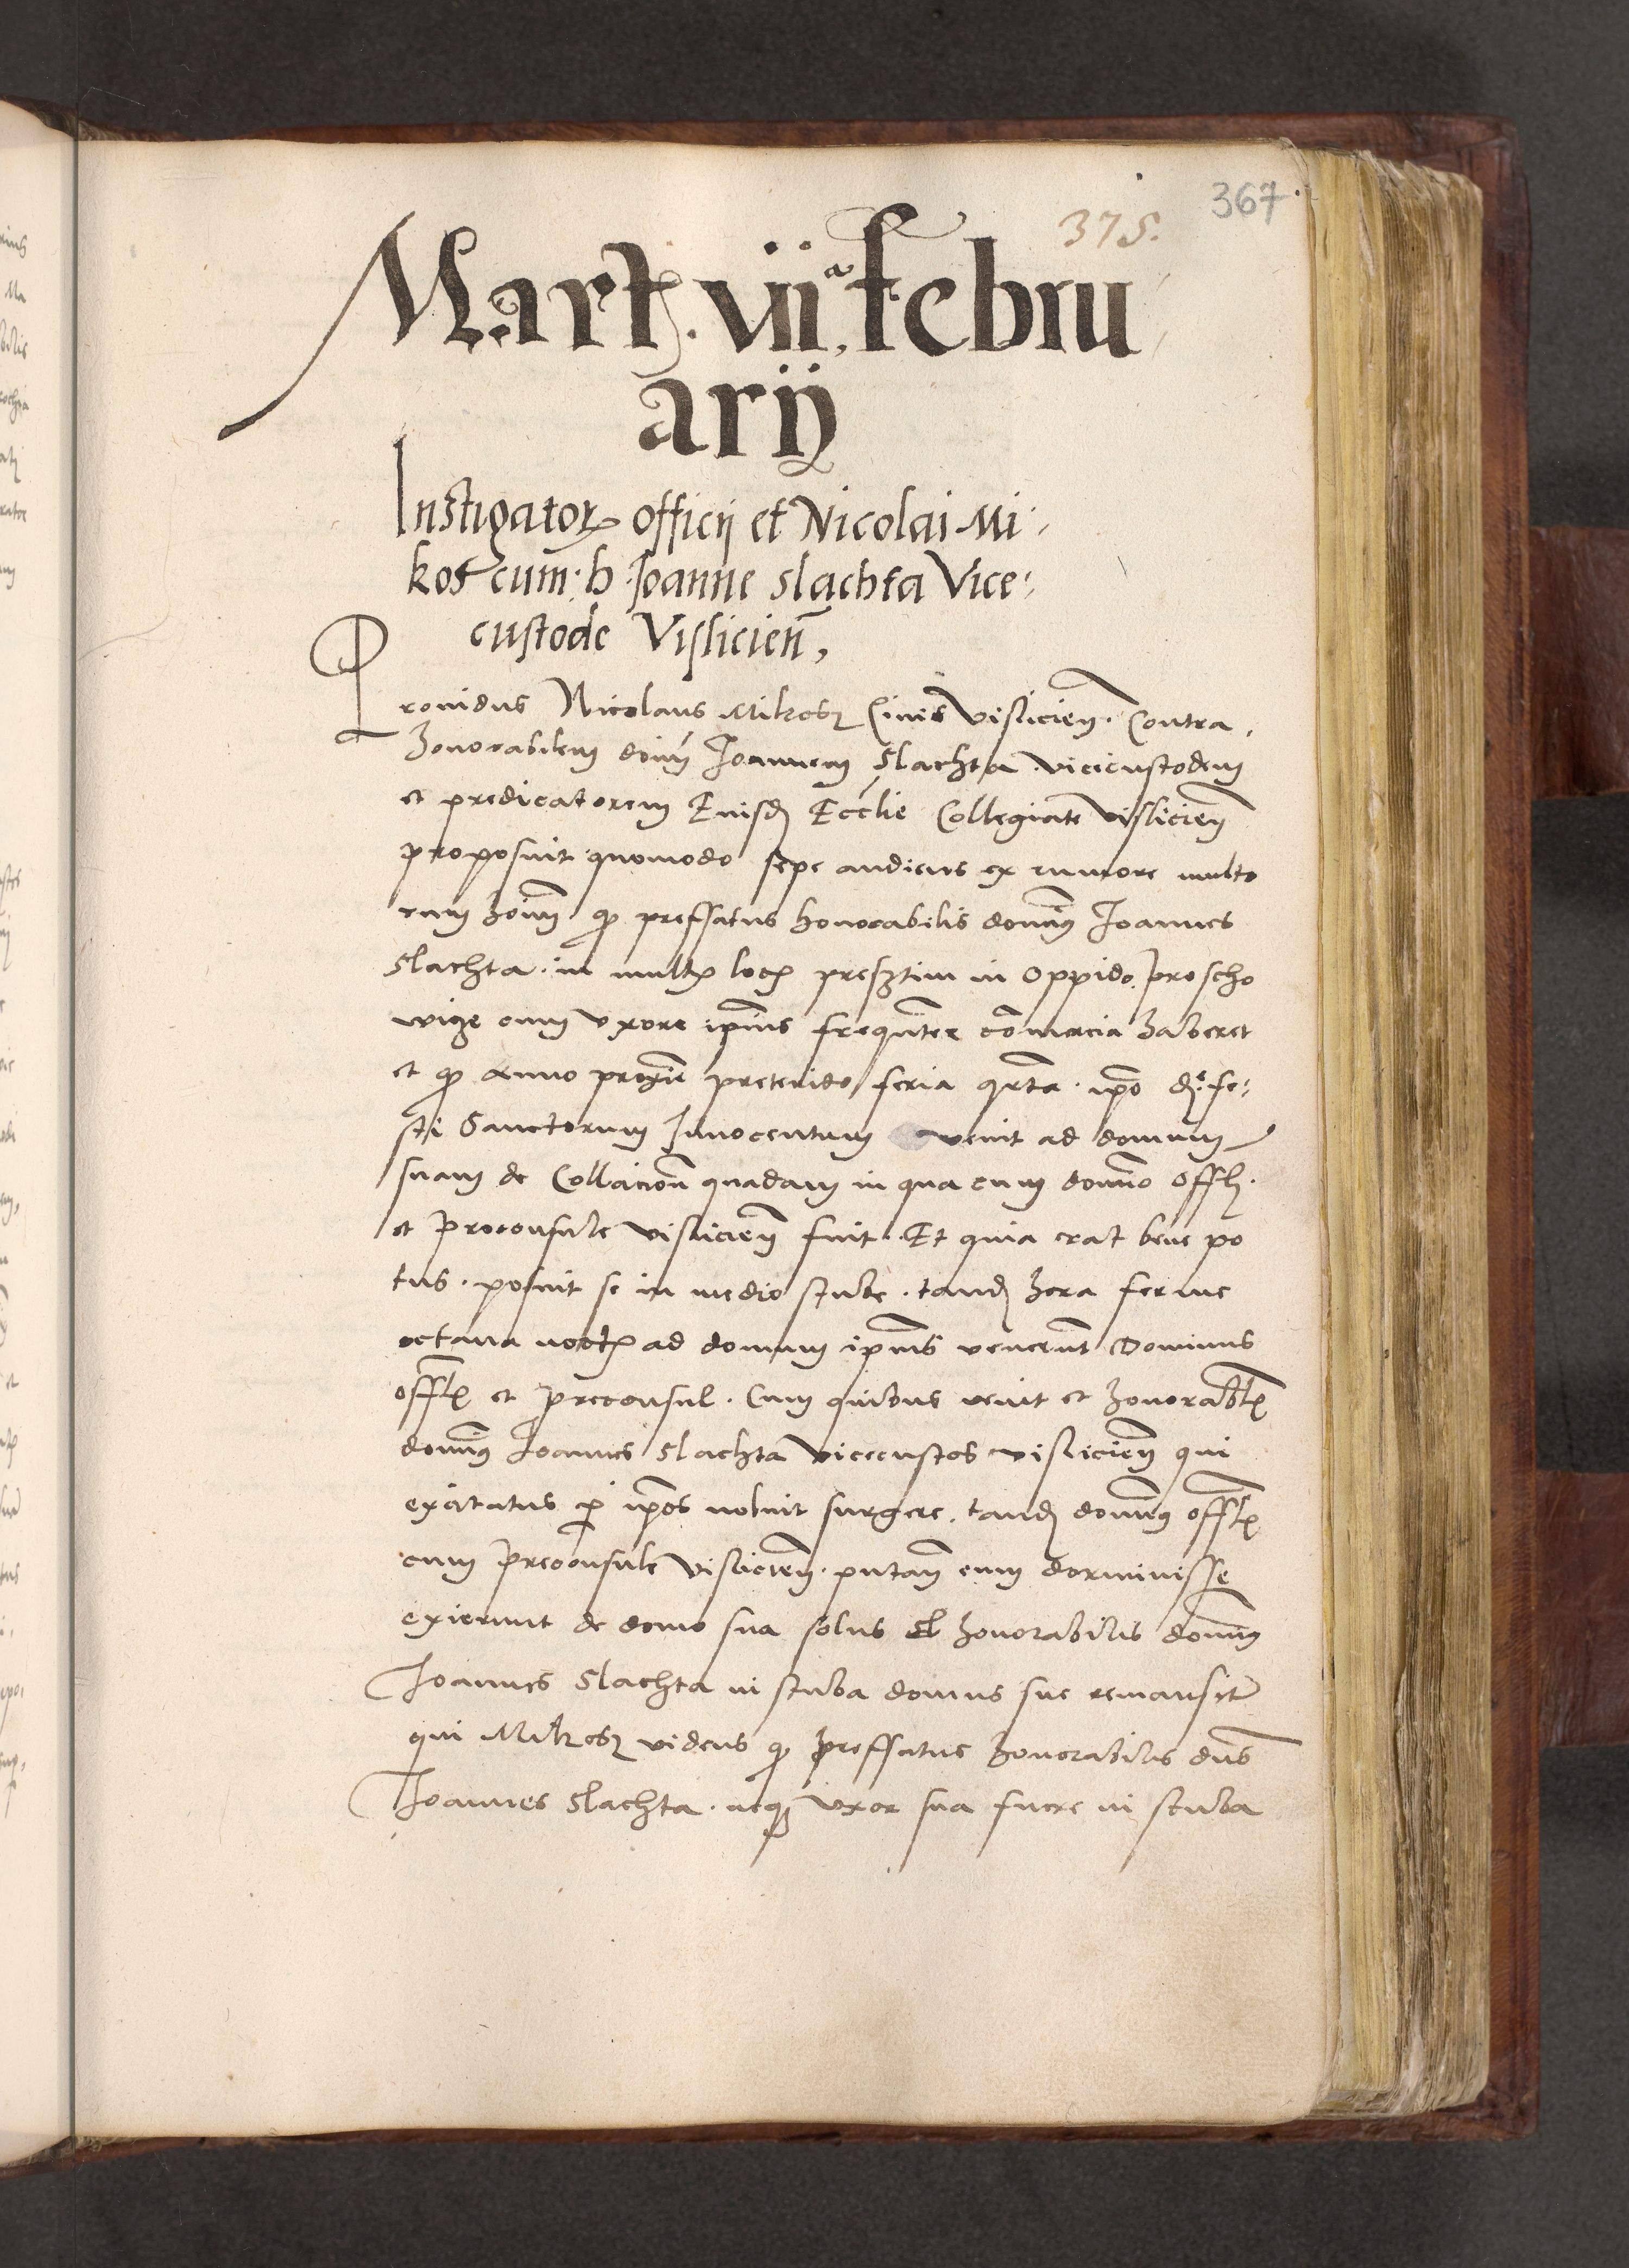 367
375.
Martꝭ. vijᵃ. febru
arij
Instigatorꝭ officij et Nicolai Mi
kos cum h Joanne slachta Vice
custode Vislicień,
Prouidus Nicolaus Mikosz Ciuis Visliciẽn. Contra
honorabilem dominũ Joannem Slachta vicecustodem
et predicatorem Eiusdꝫ Ecclie Collegiate Visliciẽn
proposuit quomodo sepe audiens ex rumore multo
rum hoim̃ qꝫ preffatus honorabilis domiñ Joannes
Slachta in multꝭ locꝭ presertim in oppido proscho
wicze cum vxore ipĩus frequẽter cõmercia haberet
et qꝫ anno proxĩe preterito feria qrta ipso die fe
sti Sanctorum Innocentum venit ad domum
suam de Collacioñ quadam in qua cum domĩo offlꝭ.
et proconsule Visliciẽn fuit. Et quia erat bene po
tus. posuit se in medio stube. tandꝫ hora ferme
octaua noctꝭ ad domum ipĩus venerũt Dominus
offlꝭ et preconsul. Cum quibus venit et honorablꝭ
domiñ Joannes Slachta vicecustos visliciẽn qui
excitatus p̱ ipsos noluit surgere. tandꝫ domiñ offlꝭ
cum preconsule Visliciẽn. putañ eum dormiuisse
exierunt de domo sua solus honorabilis domiñ
Joannes Slachta in stuba domus sue remansit
qui Mikosz videns qꝫ preffatus honorabilis dñs
Joannes Slachta. neqꝫ vxor sua fuere in stuba